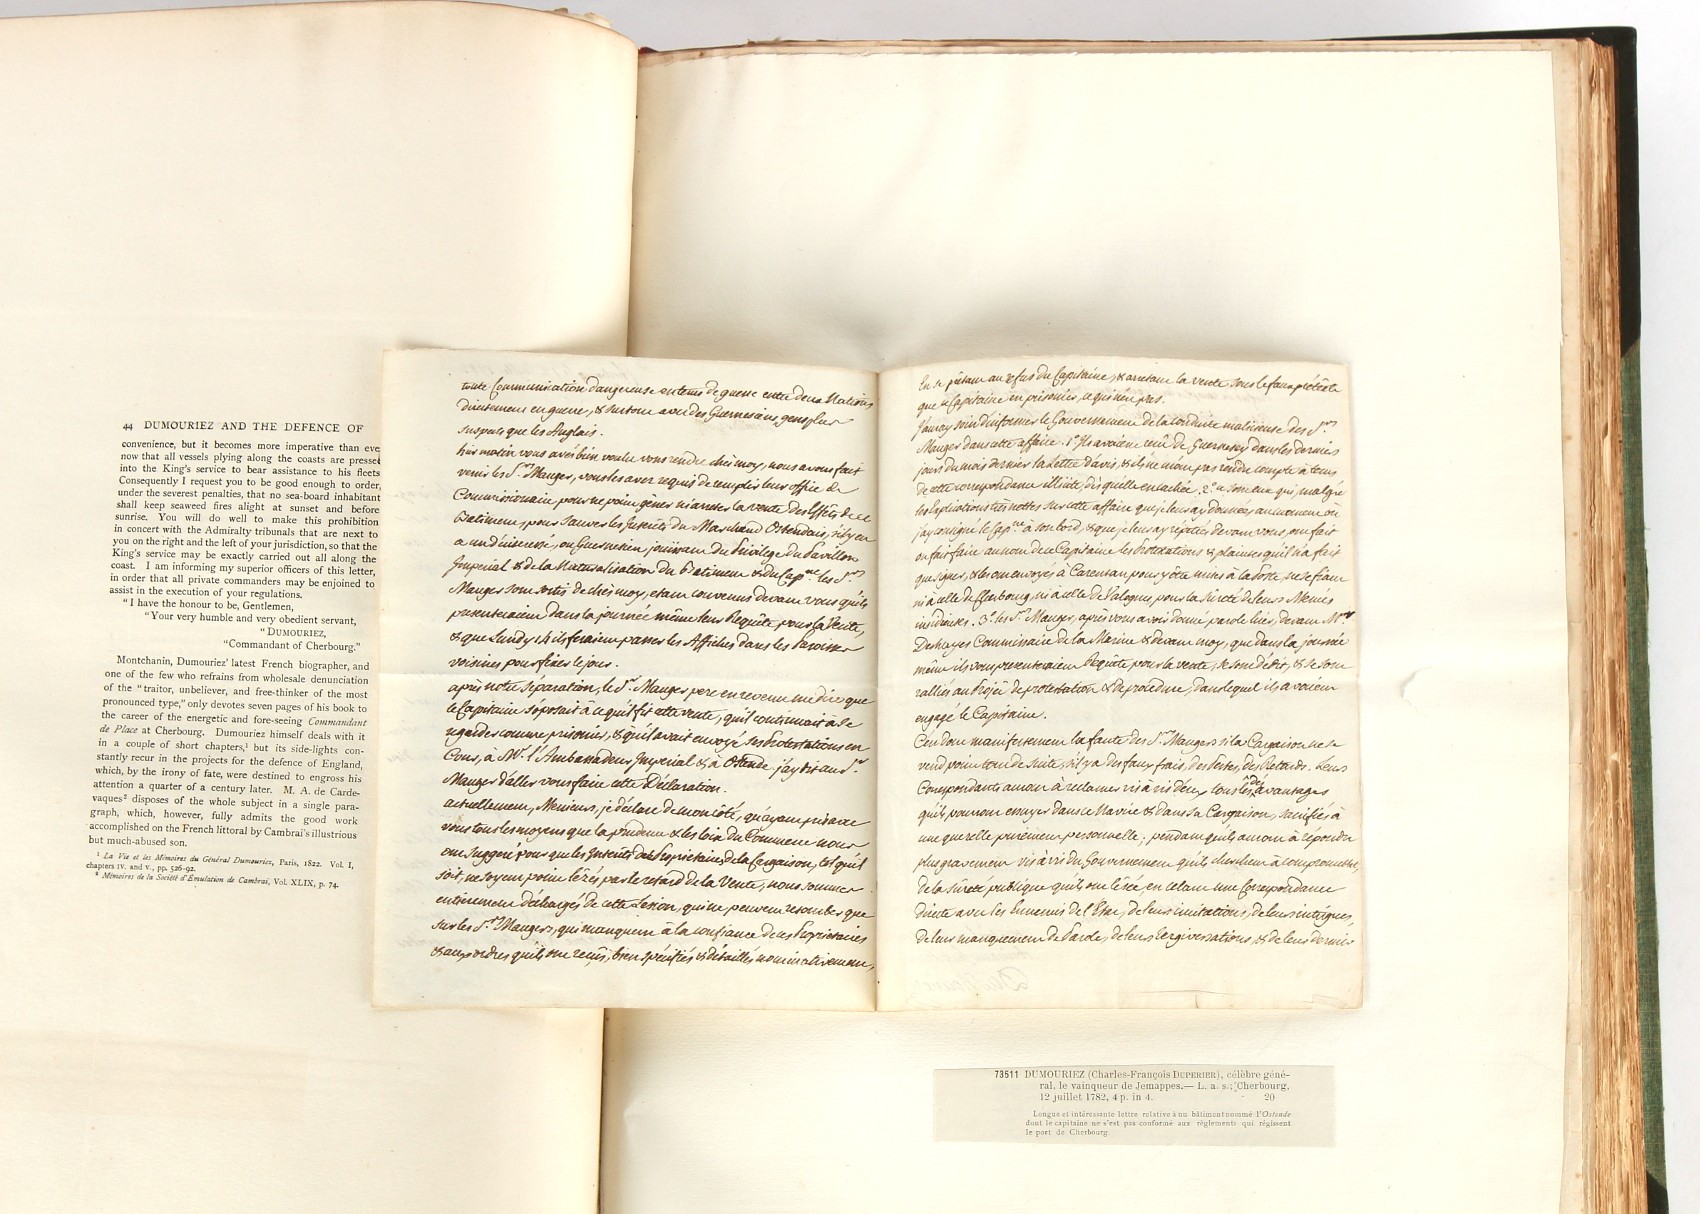 44 DUMOURIEZ AND THE DEFENCE OF
convenience, but it becomes more imperative than eve
now that all vessels plying along the coasts are pressed
into the King's service to bear assistance to his fleets
Consequently I request you to be good enough to order,
under the severest penalties, that no sea-board inhabitant
shall keep seaweed fires alight at sunset and before
sunrise. You will do well to make this prohibition
in concert with the Admiralty tribunals that are next to
you on the right and the left of your jurisdiction, so that the
King's service may be exactly carried out all along the
coast. I am informing my superior officers of this letter,
in order that all private commanders may be enjoined to
assist in the execution of your regulations.
"I have the honour to be, Gentlemen,
"Your very humble and very obedient servant,
"DUMOURIEZ,
"Commandant of Cherbourg."
Montchanin, Dumouriez' latest French biographer, and
one of the few who refrains from wholesale denunciation
of the "traitor, unbeliever, and free-thinker of the most
pronounced type," only devotes seven pages of his book to
the career of the energetic and fore-seeing Commandant
de Place at Cherbourg. Dumouriez himself deals with it
in a couple of short chapters,¹ but its side-lights con-
stantly recur in the projects for the defence of England,
which, by the irony of fate, were destined to engross his
attention a quarter of a century later. M. A. de Carde-
vaques² disposes of the whole subject in a single para-
graph, which, however, fully admits the good work
accomplished on the French littoral by Cambrai's illustrious
but much-abused son.
¹ La Vie et les Mémoires du Général Dumouriez, Paris, 1822. Vol. I,
chapters IV. and V., pp. 526-92.
² Mémoires de la Société d'Émulation de Cambrai, Vol. XLIX, p. 74.
toute Communication dangereuse en tems de guerre entre deux Nations
directement en guerre, & surtout avec des Guernesiens gens plus
suspects que les Anglais.
hier matin vous avés bien voulu vous rendre chés moy, nous avons fait
venir les Srs Mauger, vous les avez requis de remplir leur office de
Commissionaire pour ne point gêner ni arreter la vente des Effets de ce
Batiment, pour sauver les Interets du Marchand Ostendais, s'il y en
a un d'interessé, ou Guernesien jouissant du Privilege du Pavillon
Imperial & de la Naturalisation du batiment & du Capne les Srs
Mauger sont sortis de chés moy, etant convenus devant vous qu'ils
presenteroient dans la journée même leur Requête pour la Vente,
& que Lundy ils feroient passer les Affiches dans les Paroisses
voisines pour fixer le jour.
après notre séparation, le Sr Mauger pere est revenu me dire que
le Capitaine s'oposait à ce qu'il fit cette vente, qu'il continuait à se
regarder comme prisonier, & qu'il avait envoyé ses Protestations en
Cour, à Mr l'Ambassadeur Imperial & à Ostende. j'ay dit au Sr
Mauger d'aller vous faire cette Déclaration.
actuellement, Messieurs, je déclare de mon côté, qu'ayant pris avec
vous tous les moyens que la prudence & les loix du Commerce nous
ont suggeré pour que les Interets des Proprietaires de la Cargaison, tel qu'il
soit, ne soyent point lézés par le retard de la Vente, nous sommes
entierement déchargés de cette Lesion, qui ne peuvent retomber que
sur les Srs Maugers, qui manquent à la confiance de ces Proprietaires
& aux ordres qu'ils ont reçus, bien specifiés & détaillés nominativement,
En se prêtant au refus du Capitaine, & arretant la vente sous le faux prétexte
que ce Capitaine est prisonier, ce qui n'est pas.
J'auray soin d'informer le Gouvernement de la conduite malicieuse des Srs
Mauger dans cette affaire. 1° Ils avoient reçu de Guernesey dans les derniers
jours du mois dernier la Lettre d'avis, & ils ne m'ont pas rendu compte à tems
de cette correspondance illicite, dès qu'elle est cachée. 2° ce sont eux qui, malgré
les explications très nettes sur cette affaire que je leur ay données au moment où
j'ay consigné le Capne à son bord, & que je leur ay répétées devant vous, ont fait
ou fait faire au nom de ce Capitaine les Protestations & plaintes qu'il n'a fait
que signer, & les ont envoyés à Carentan pour y être mises à la Poste, ne se fiant
ni à celle de Cherbourg, ni à celle de Valognes, pour la sûreté de leurs Menées
insidieuses. 3° les Srs Mauger, après vous avoir donné parole hier, devant Mr
Deshayes Commissaire de la Marine & devant moy, que dans la journée
même ils vous presenteroient Requête pour la vente, se sont dédit, & se sont
ralliés au Projet de protestation & de procédure, dans lequel ils avoient
engagé le Capitaine.
C'est donc manifestement la faute des Srs Maugers si la Cargaison ne se
vend point tout de suite, s'il y a des faux frais, des Pertes, des Retards. Leurs
Correspondants auront à reclamer vis à vis d'eux tous les désavantages
qu'ils pourront essuyer dans ce Navire & dans sa Cargaison, sacrifiés à
une querelle purement personnelle; pendant qu'ils auront à répondre
plus gravement vis à vis du Gouvernement qu'ils cherchent à compromettre,
de la sûreté publique qu'ils ont lézée en celant une Correspondance
directe avec les Ennemis de l'Etat, de leurs incitations, de leurs intrigues,
de leur manquement de Parole, de leurs tergiversations, & de leur dernier
73511 DUMOURIEZ (Charles-François DUPERIER), célèbre géné-
ral, le vainqueur de Jemappes.— L. a. s.; Cherbourg,
12 juillet 1782, 4 p. in 4. 20
Longue et intéressante lettre relative à un bâtiment nommé l'Ostende
dont le capitaine ne s'est pas conformé aux règlements qui régissent
le port de Cherbourg.